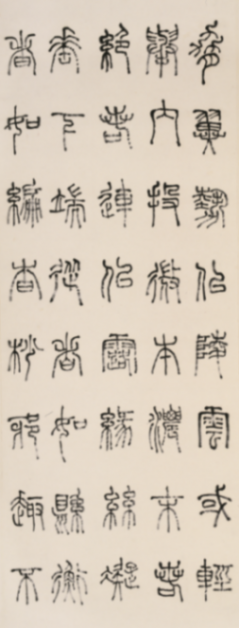 脅翼勢佀陵雲或輕
舉內投微本濃末若
絕若連佀露緣絲凝
垂下端從者如縣衡
者如編杳杪邪趣不